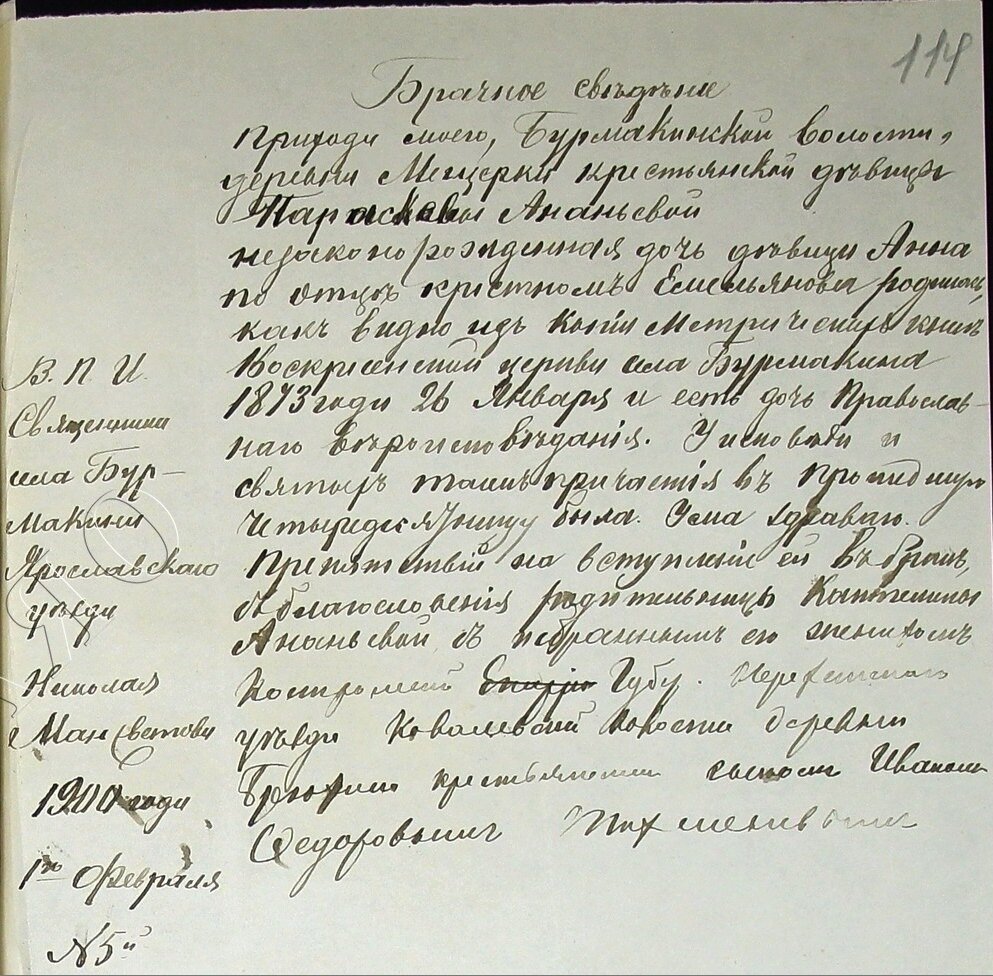 114
Брачное свѣдѣнie
Прихода моего, Бурмакинской волости,
деревни Мещерки крестьянской дѣвицы
Параскевы Ананьевой
незаконорожденная дочь дѣвица Анна
по отцѣ крестномъ Емельянова родилась,
какъ видно изъ копiи Метрическихъ книгъ
Воскресенской церкви села Бурмакина
1873 года 26 Января и есть дочь Православ-
наго вѣроисповѣданiя. У исповѣди и
святыхъ таинъ причастiя въ прошедшую
четыредесятницу была. Ума здраваго.
Препятствiй на вступленiе ей въ бракъ,
съ благословенiя родительницы
Ананьевой, съ избраннымъ ею женихомъ
Костромской Губ. Нерехтскаго
уѣзда Ковалевской волости деревни
крестьянскимъ сыномъ Иваномъ
Ѳедоровымъ
В. П. И.
Священника
села Бур-
макина
Ярославскаго
уѣзда
Николая
Мансветова
1900 года
1го Февраля
№ 5й